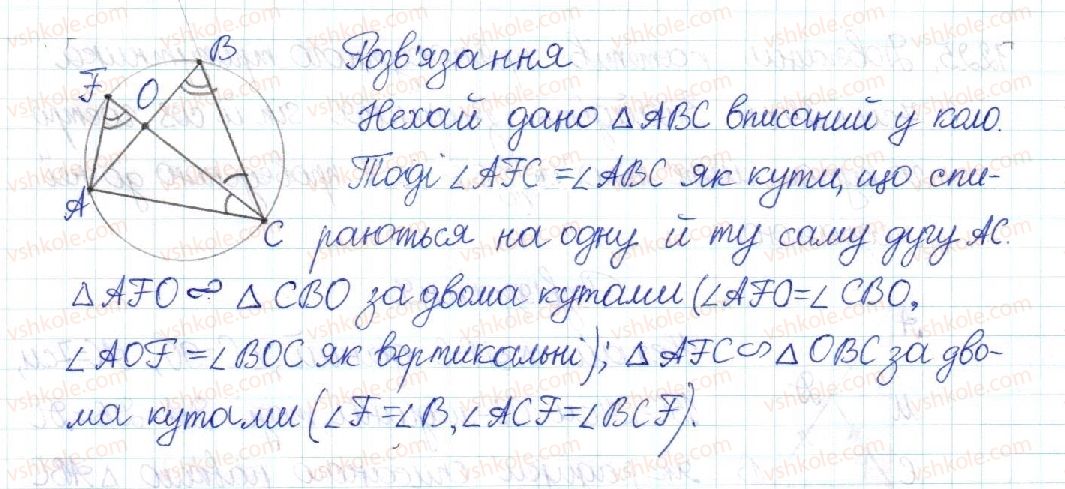 B
F
O
A
C
Розв'язання
Нехай дано △ABC вписаний у коло.
Тоді ∠AFC = ∠ABC як кути, що спи-
раються на одну й ту саму дугу AC.
△AFO ∞ △CBO за двома кутами (∠AFO=∠CBO,
∠AOF = ∠BOC як вертикальні); △AFC ∞ △OBC за дво-
ма кутами (∠F=∠B, ∠ACF=∠BCF).
vshkole.com